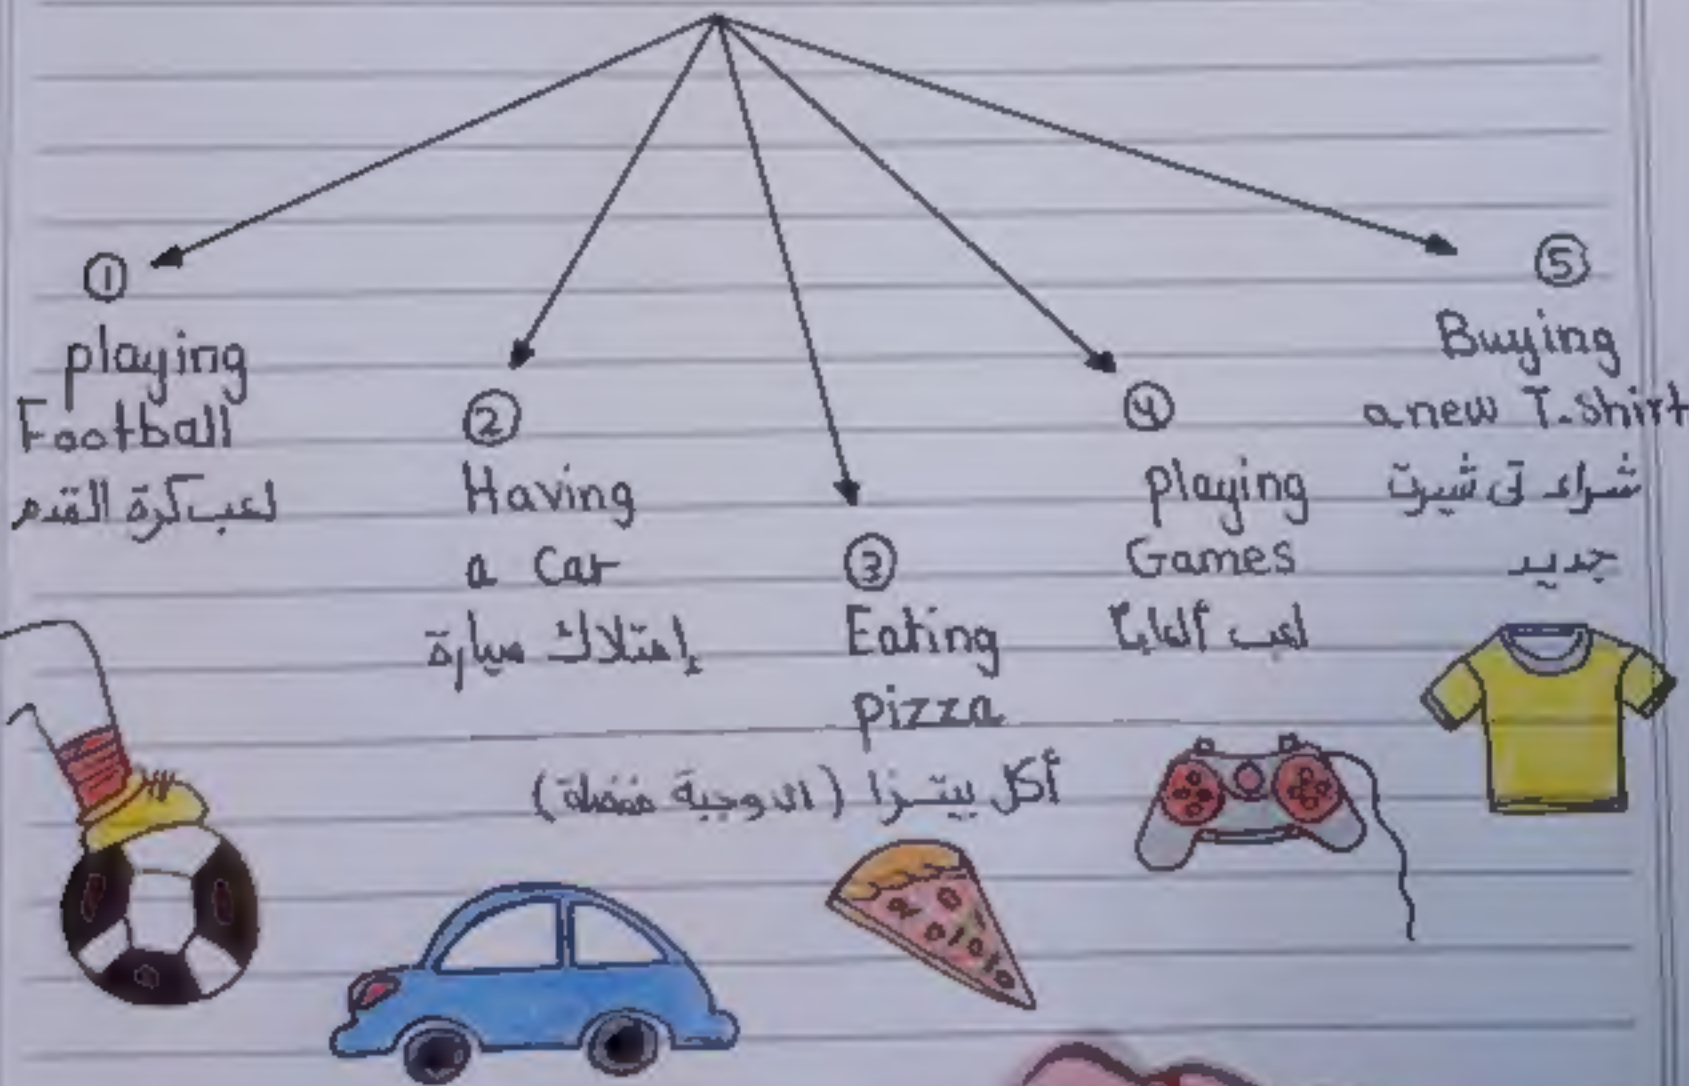 ①
playing
Football
لعب كرة القدم
②
Having
a Car
إمتلاك سيارة
③
Eating
pizza
أكل بيتزا (الوجبة مفضلة)
④
playing
Games
لعب ألعاباً
⑤
Buying
a new T-shirt
شراء تى شيرت
جديد